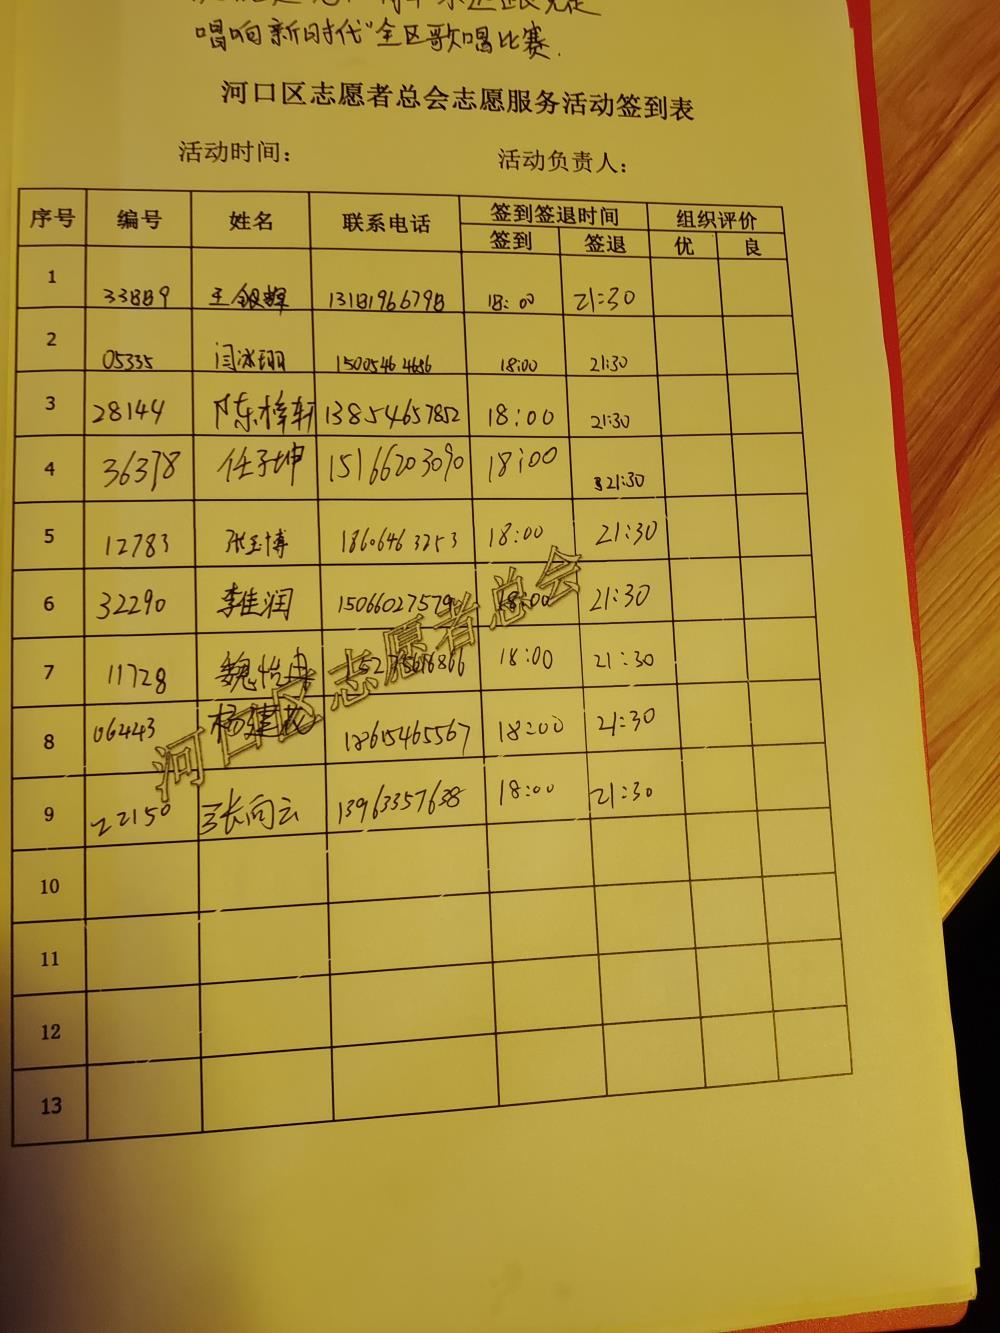 唱响新时代"全区歌唱比赛.
河口区志愿者总会志愿服务活动签到表
活动时间： 活动负责人：
序号 编号 姓名 联系电话 签到签退时间 组织评价
签到 签退 优 良
1 33889 王银辉 13181966798 18:00 21:30
2 05335 闫冰珊 15005464686 18:00 21:30
3 28144 陈梓轩 13854657852 18:00 21:30
4 36378 任子坤 15166203090 18:00 21:30
5 12783 张玉博 18606463253 18:00 21:30
6 32290 李佳润 15066027579 18:00 21:30
7 11728 魏怡冉 18:00 21:30
8 06443 杨建 18615465567 18:00 21:30
9 22150 张向云 13963357638 18:00 21:30
10
11
12
13
河口区志愿者总会